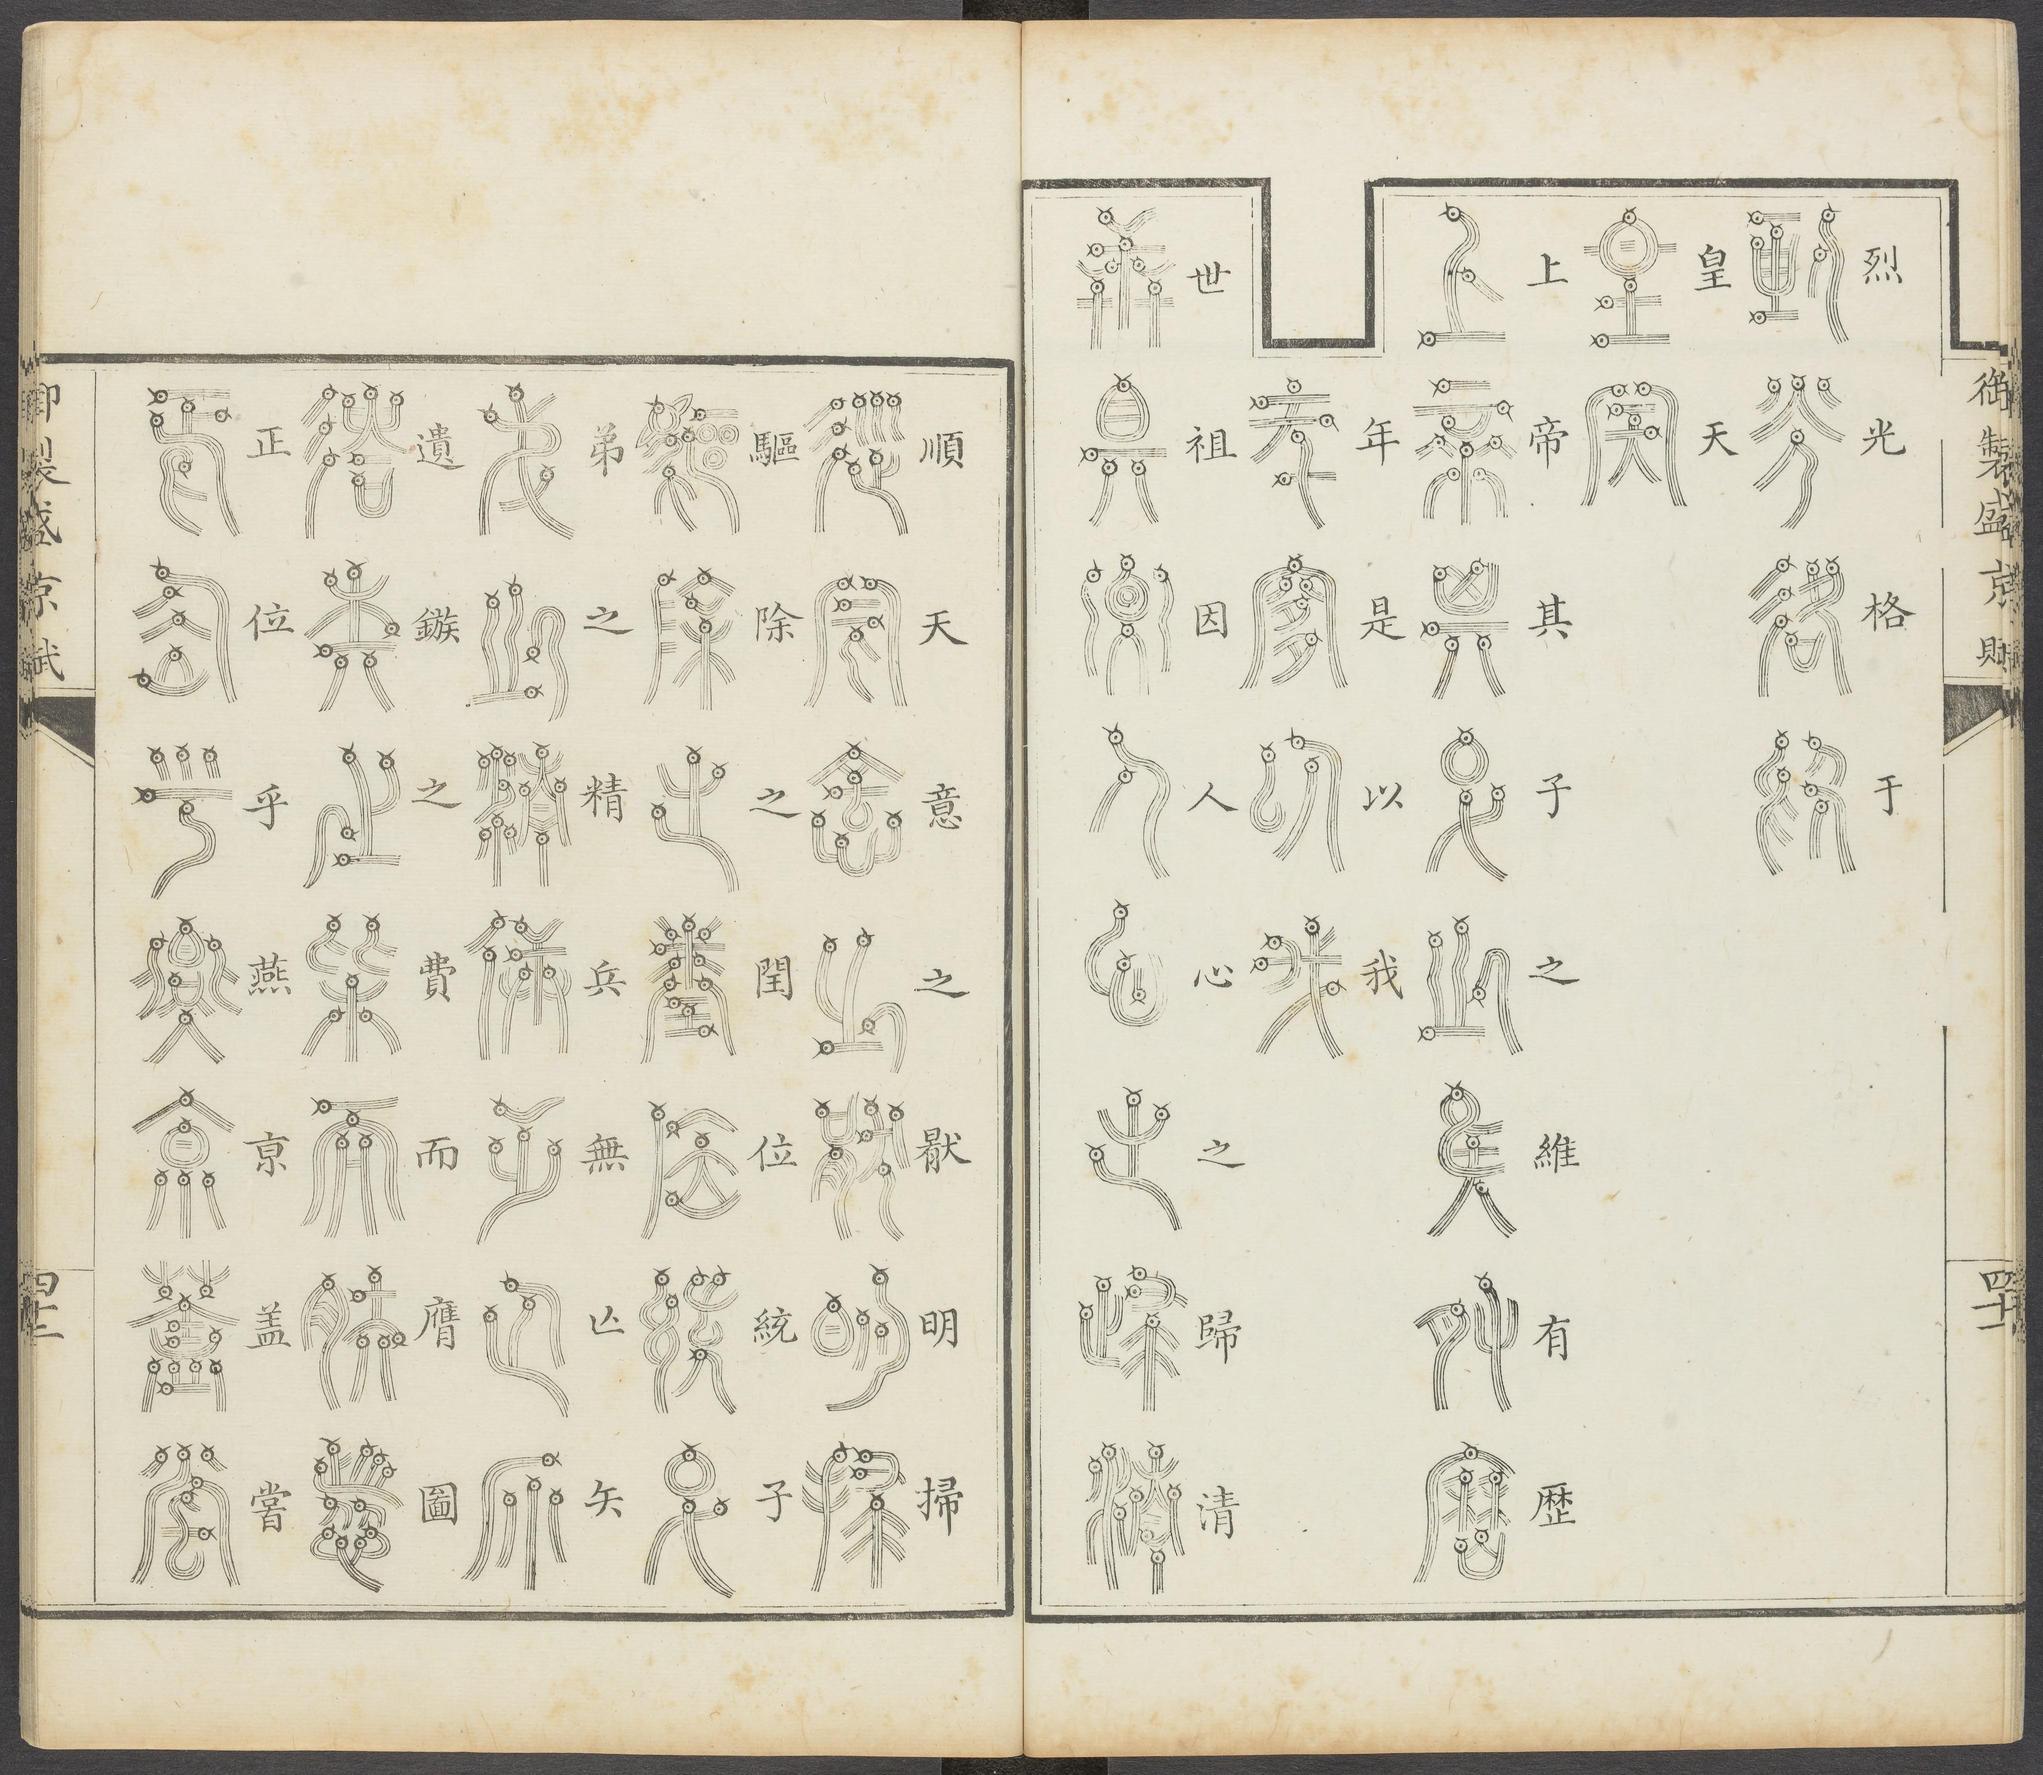 御製盛京賦
烈光格于
皇天
上帝其子之維有歷
年是以我
世祖因人心之歸清
四十一
順天意之厭明掃
驅除之閏位統子
弟之精兵無亡矢
遺鏃之費而膺圖
正位乎燕京盖嘗
御製盛京賦